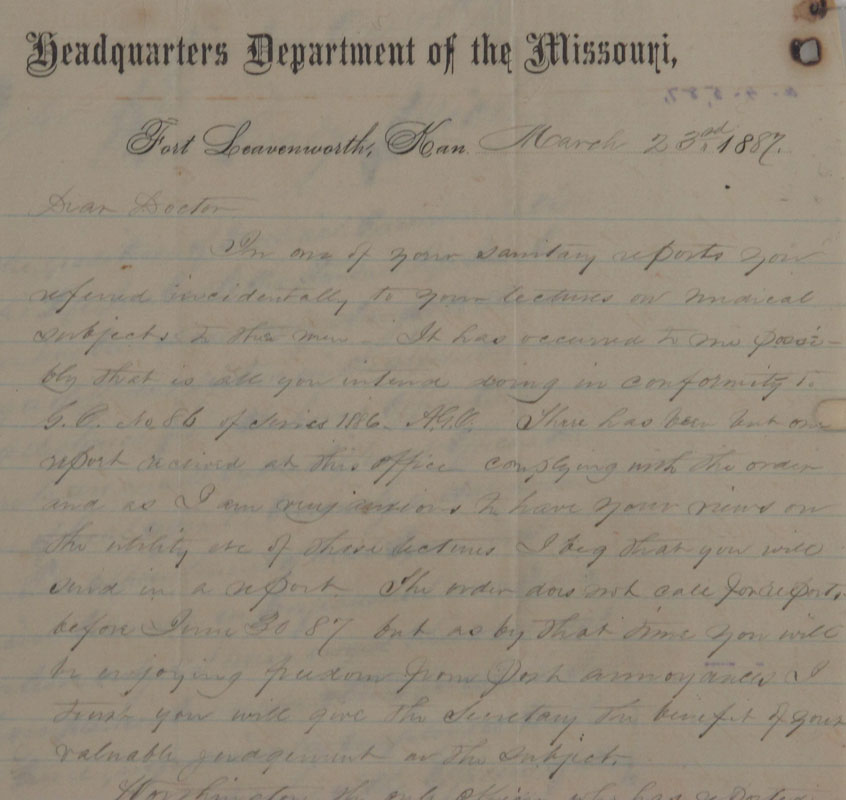 Headquarters Department of the Missouri,
Fort Leavenworth, Kan. March 23rd, 1887.
Dear Doctor
In one of your sanitary reports you
referred incidentally to your lectures on medical
subjects to the men. It has occurred to me possi-
bly that is all you intend doing in conformity to
G.O. No 86 of Series 1886. A.G.O. There has been but one
report received at this office complying with the order
and as I am very anxious to have your views on
the utility etc of these lectures I beg that you will
send in a report. The order does not call for reports
before June 30 87 but as by that time you will
be enjoying freedom from Post annoyances I
trust you will give the Secretary the benefit of your
valuable judgement on the subject.
the only officer who has reported